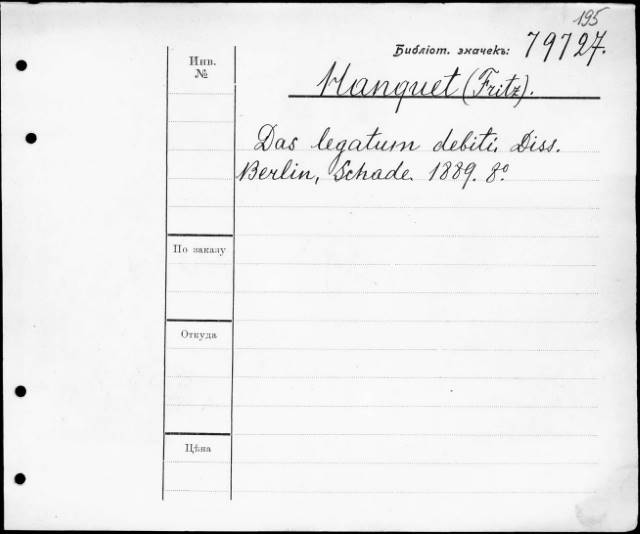 195
Библіот. значекъ: 79727.
Инв.
№
Manquet (Fritz).
Das legatum debiti. Diss.
Berlin, Schade. 1889. 8º.
По заказу
Откуда
Цѣна